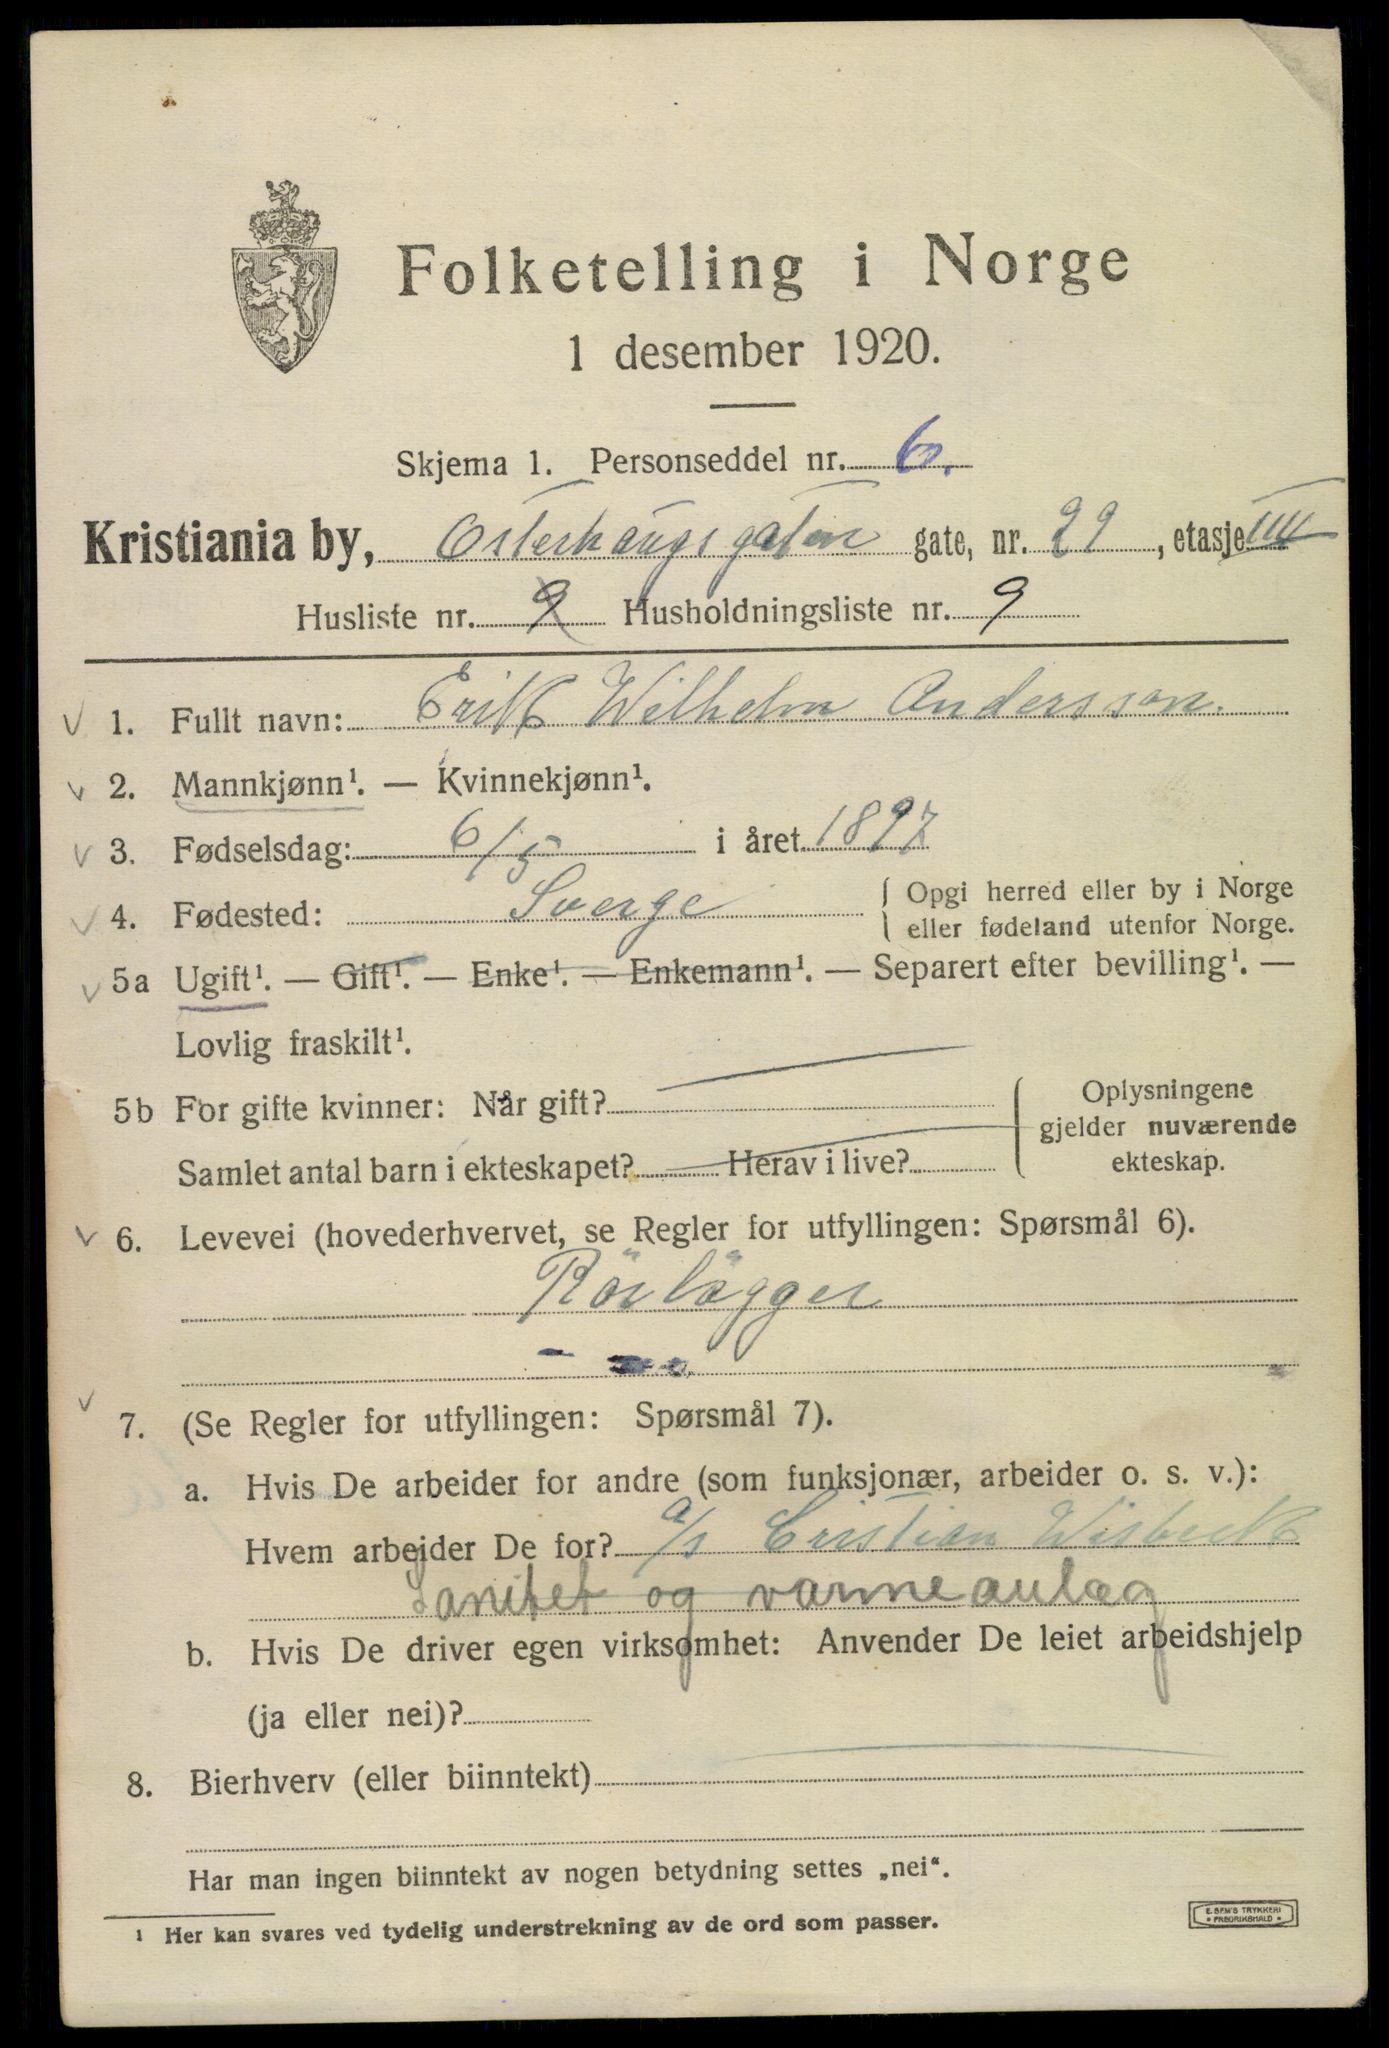 Folketelling i Norge
1 desember 1920.
Skjema 1. Personseddel nr. 6.
Kristiania by, Osterhaugsgaten gate, nr. 29, etasje IIII
Husliste nr. 9 Husholdningsliste nr. 9
1. Fullt navn: Erik Wilhelm Andersson.
2. Mannkjønn¹. — Kvinnekjønn¹.
3. Fødselsdag: 6/5 i året 1897
4. Fødested: Sverge { Opgi herred eller by i Norge
eller fødeland utenfor Norge.
5a Ugift¹. — Gift¹. — Enke¹. — Enkemann¹. — Separert efter bevilling¹. —
Lovlig fraskilt¹.
5b For gifte kvinner: Når gift? Oplysningene
gjelder nuværende
Samlet antal barn i ekteskapet? Herav i live? ekteskap.
6. Levevei (hovederhvervet, se Regler for utfyllingen: Spørsmål 6).
Rörlägger
7. (Se Regler for utfyllingen: Spørsmål 7).
a. Hvis De arbeider for andre (som funksjonær, arbeider o. s. v.):
Hvem arbeider De for? a/s Cristian Wisbeck
Sanitet og varmeanlæg
b. Hvis De driver egen virksomhet: Anvender De leiet arbeidshjelp
(ja eller nei)?
8. Bierhverv (eller biinntekt)
Har man ingen biinntekt av nogen betydning settes „nei“.
¹ Her kan svares ved tydelig understrekning av de ord som passer.
E. SEM'S TRYKKERI
• FREDRIKSHALD •